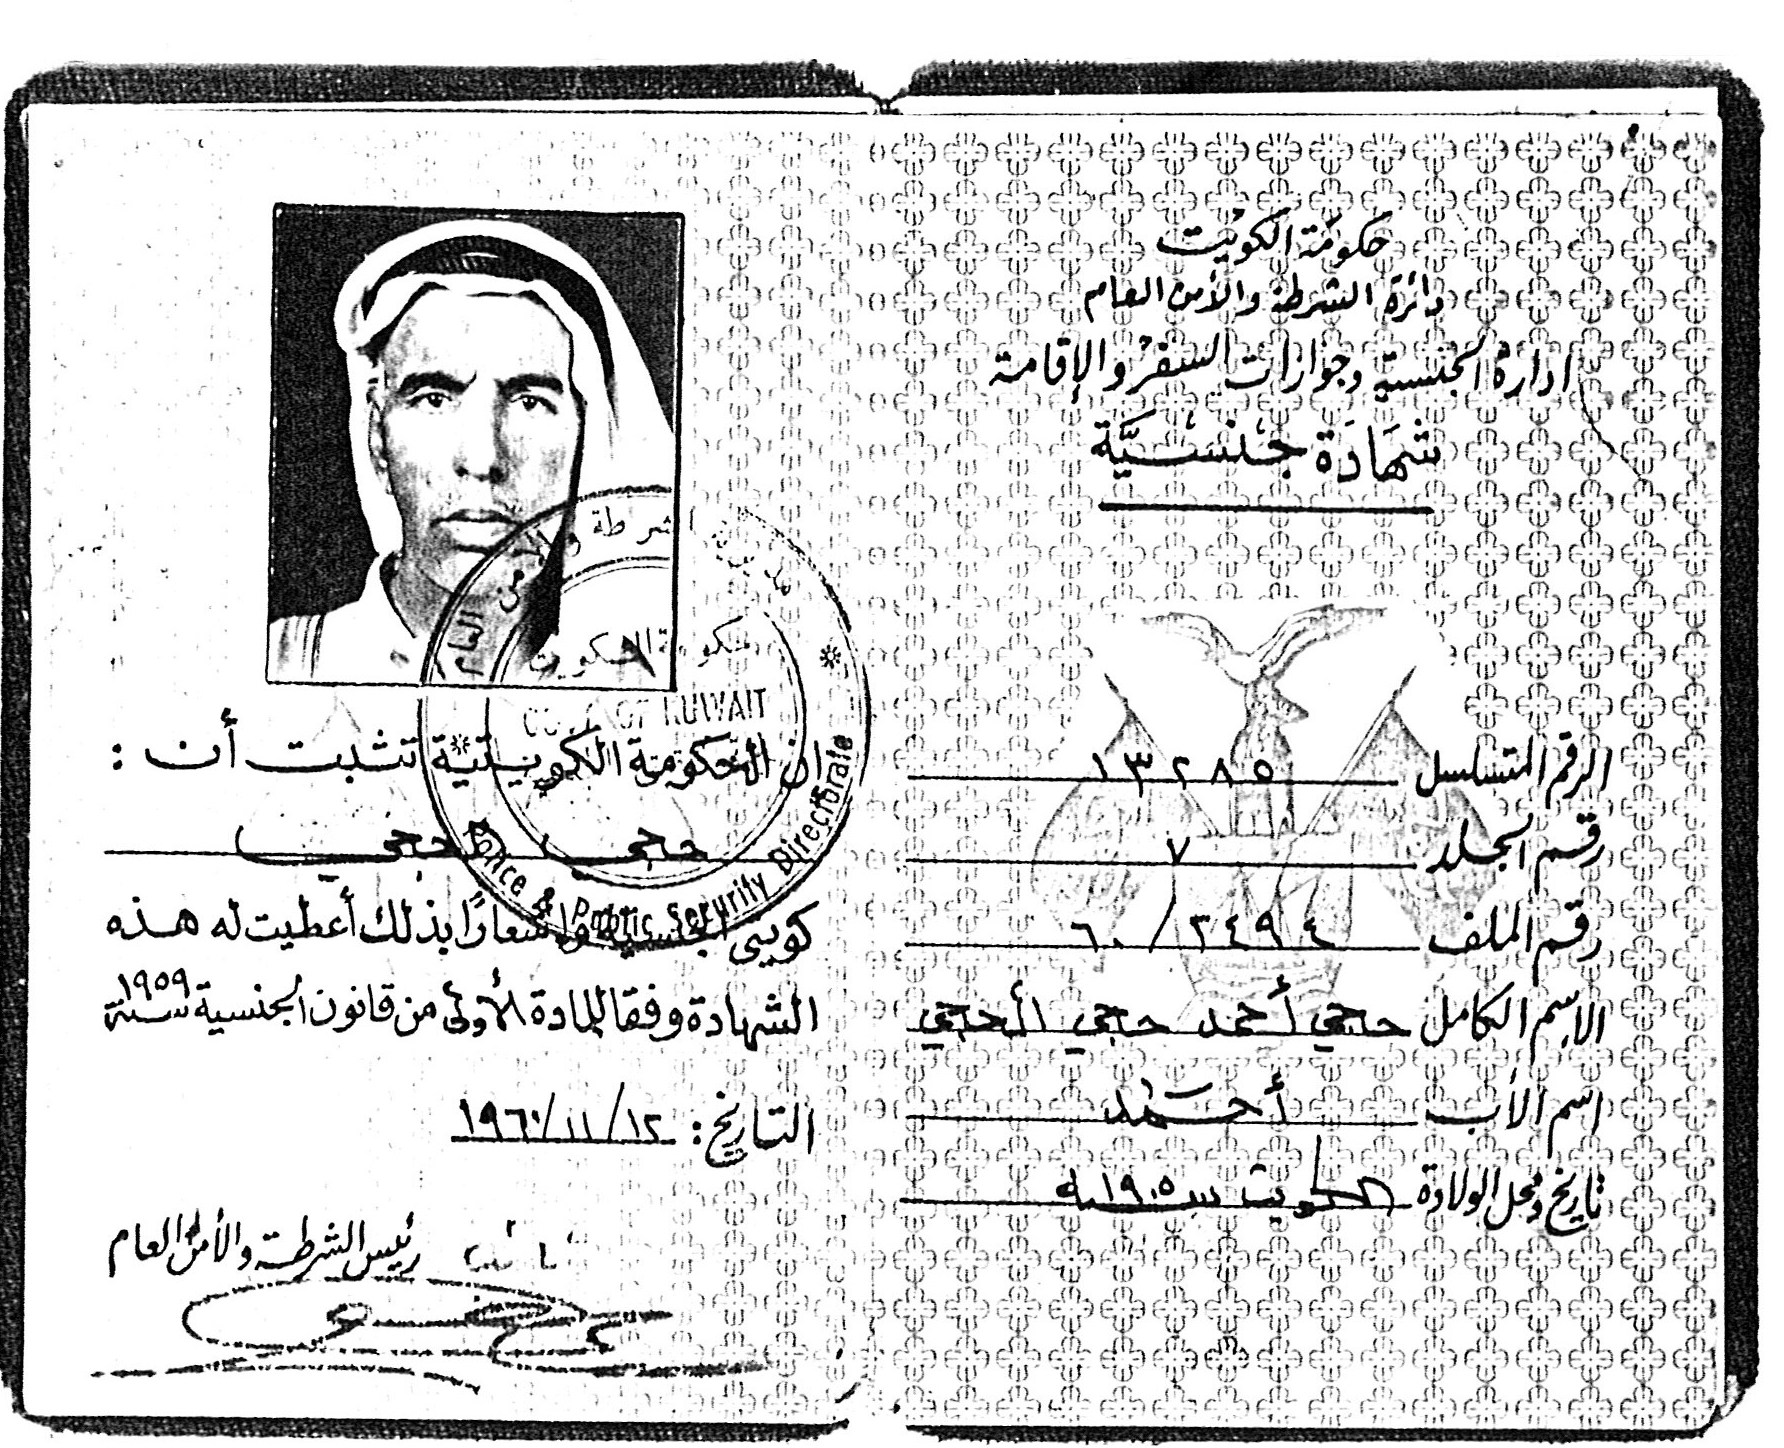 حكومة الكويت
دائرة الشرطة والأمن العام
ادارة الجنسية وجوازات السفر والإقامة
شهادة جنسيّة
الرقم المتسلسل ١٣٢٨٥
رقم الجلد ٧
رقم الملف ٣٤٩٤ / ٦٠
الاسم الكامل حجي أحمد حجي الحجي
اسم الأب أحمد
تاريخ ومحل الولادة الكويت سنة ١٩٠٥
مديرية الشرطة والامن العام
حكومة الكويت
GOVT. OF KUWAIT
Police & Public Security Directorate
ان الحكومة الكويتية تثبت أن :
حجي
كويتي الجنسية واشعارًا بذلك أعطيت له هذه
الشهادة وفقا للمادة الأولى من قانون الجنسية سنة ١٩٥٩
التاريخ : ١٩٦٠/١١/١٢
رئيس الشرطة والأمن العام